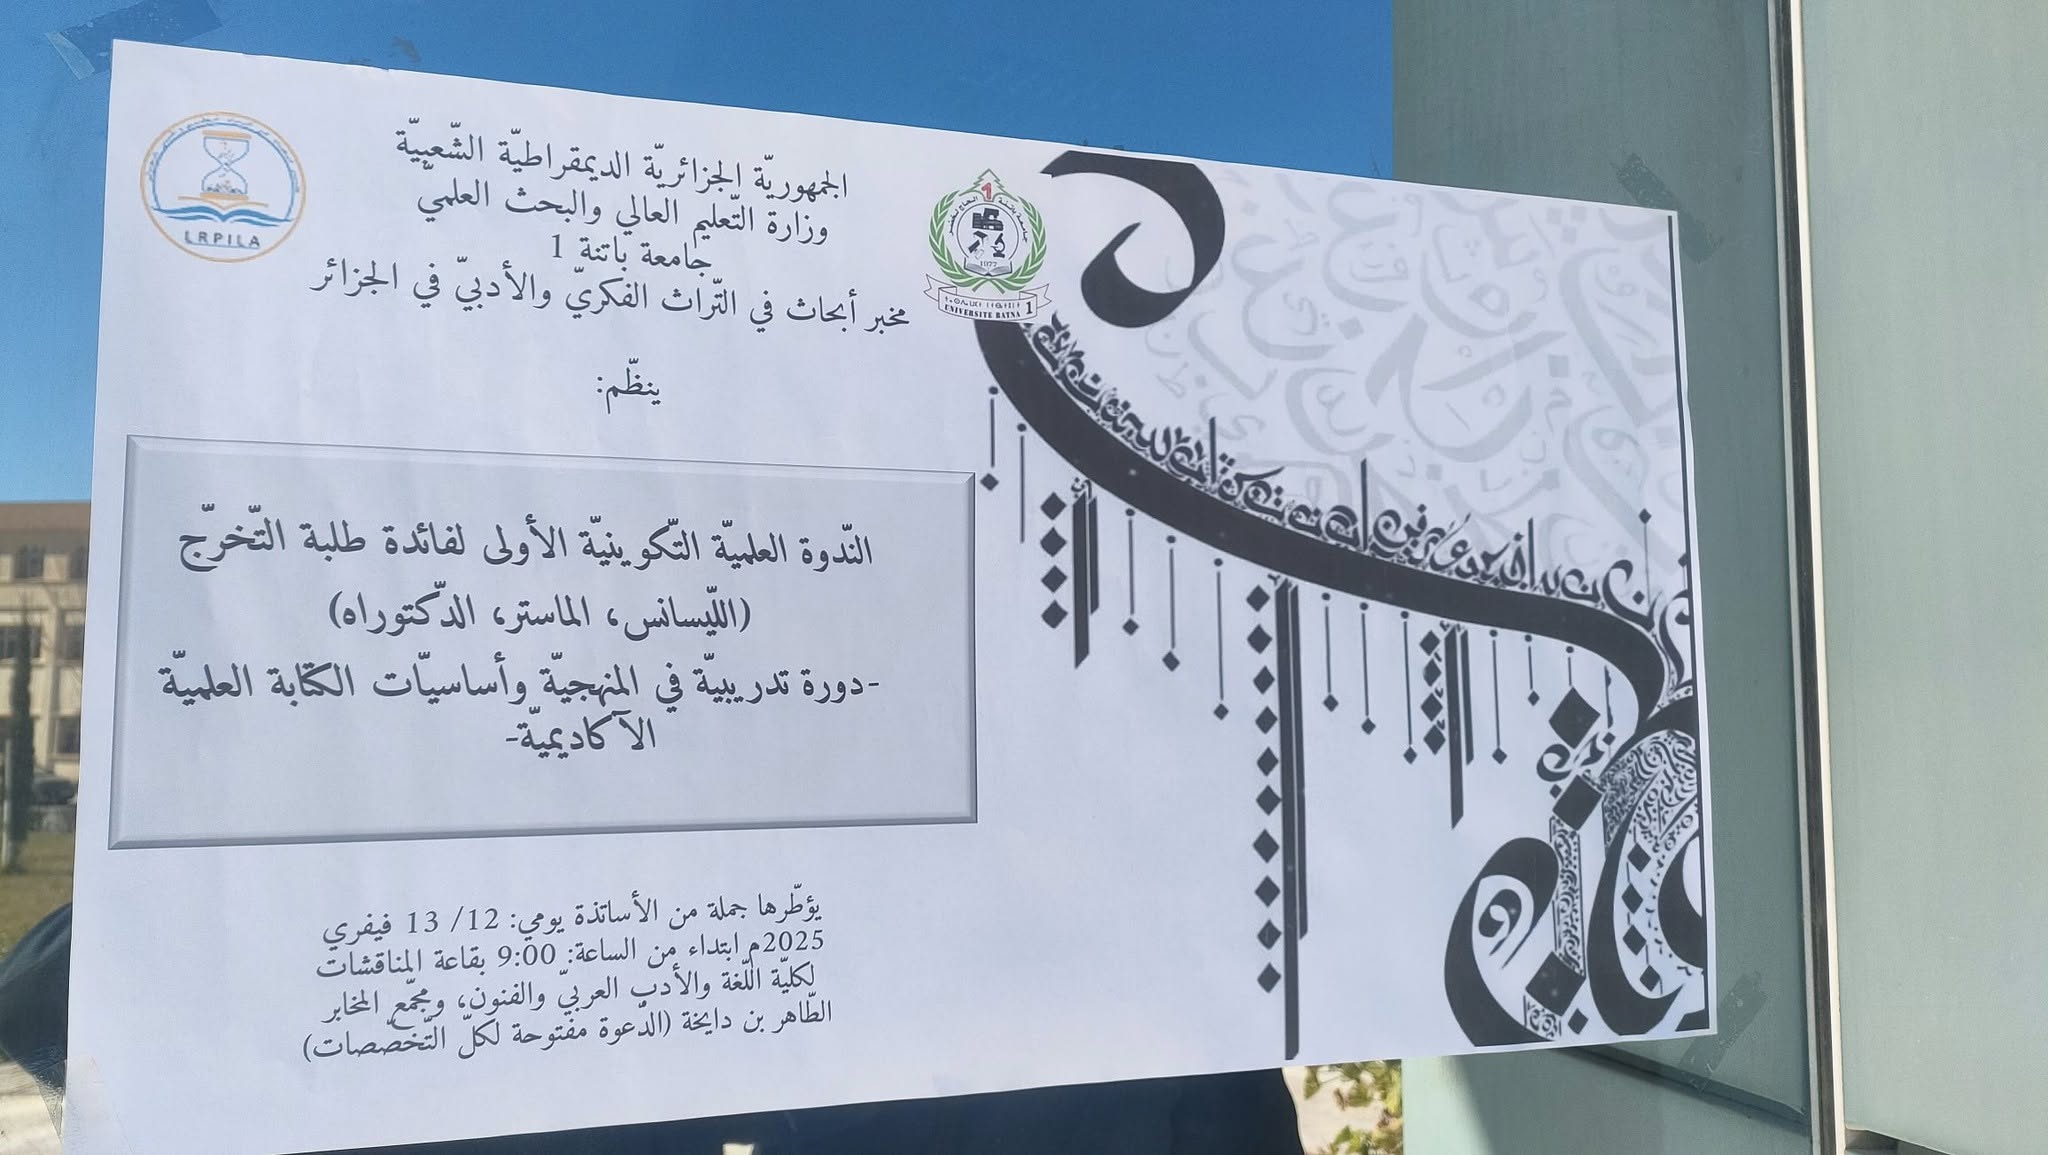 الجمهوريّة الجزائريّة الديمقراطيّة الشّعبيّة
وزارة التّعليم العالي والبحث العلميّ
جامعة باتنة 1
مخبر أبحاث في التّراث الفكريّ والأدبيّ في الجزائر
ينظّم:
النّدوة العلميّة التّكوينيّة الأولى لفائدة طلبة التّخرّج
(اللّيسانس، الماستر، الدّكتوراه)
-دورة تدريبيّة في المنهجيّة وأساسيّات الكتابة العلميّة
الآكاديميّة-
يؤطّرها جملة من الأساتذة يومي: 12/ 13 فيفري
2025م ابتداء من الساعة: 9:00 بقاعة المناقشات
لكليّة اللّغة والأدب العربيّ والفنون، ومجمّع المخابر
الطّاهر بن دايخة (الدّعوة مفتوحة لكلّ التّخصّصات)
LRPILA
1
1977
UNIVERSITE BATNA 1